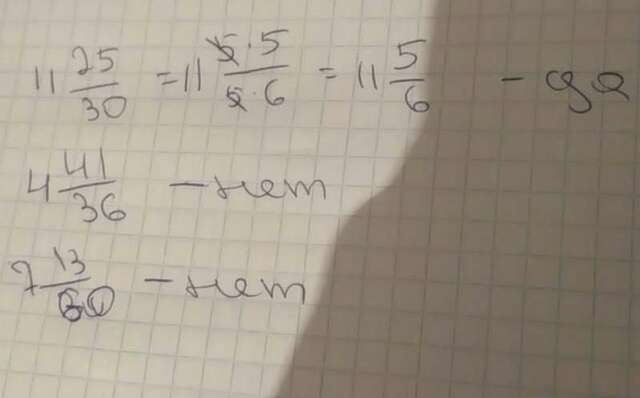 11 25/30 = 11 5·5/5·6 = 11 5/6 - да
4 41/36 - нет
7 13/60 - нет